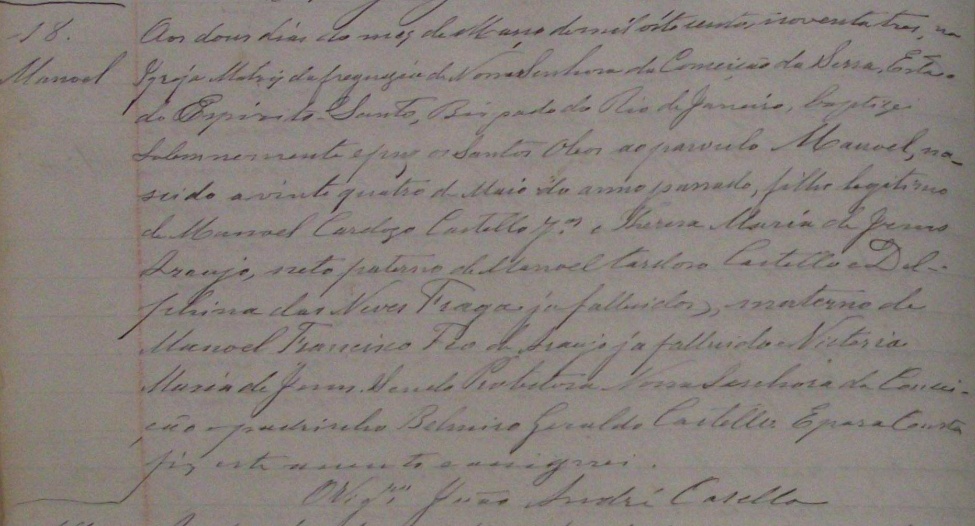 18. Aos dous dias do mez de Março de mil oito centos noventa tres, na
Manoel Igreja Matriz da freguezia de Nossa Senhora da Conceição da Serra, Estado
do Espirito Santo, Bispado do Rio de Janeiro, baptizei
solemnemente e puz os Santos Oleos ao parvulo Manoel, na-
scido a vinte quatro de Maio do anno passado, filho legitimo
de Manoel Cardozo Castello Jor e Thereza Maria de Jesus
Araujo, neto paterno de Manoel Cardoso Castello e Del-
phina das Neves Fraga já fallecidos, materno de
Manoel Francisco de Araujo já fallecido e Victoria
Maria de Jesus. Sendo Protectora Nossa Senhora da Concei-
ção e padrinho Belmiro Geraldo Castello. E para constar
fiz este assento e assignei.
O Vigro João André Casella